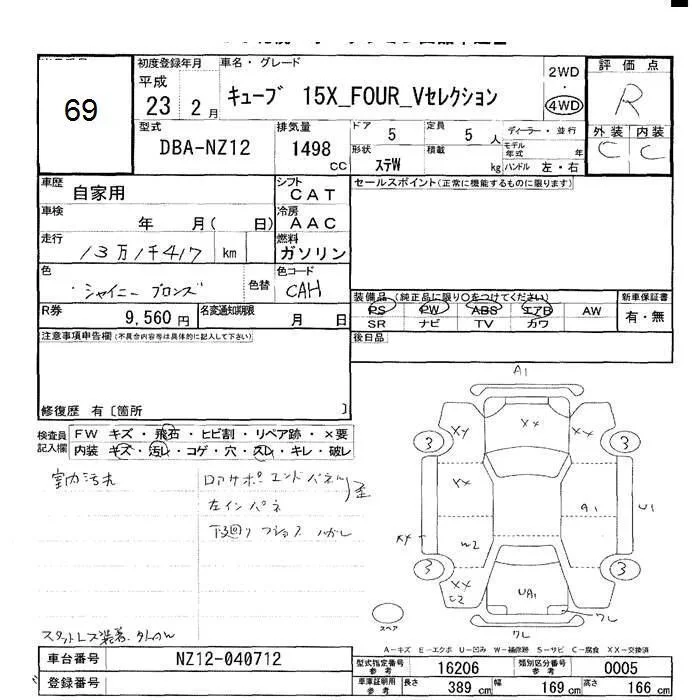 69
初度登録年月
平成
23 2 月
車名・グレード
キューブ 15X_FOUR_Vセレクション
2WD
・
4WD
評価点
R
外装 内装
C C
型式
DBA-NZ12
排気量
1498
CC
ドア 5
定員 5 人
ディーラー・並行
形状 ステW
積載 kg
モデル年式 年
ハンドル 左・右
車歴
自家用
シフト
CAT
セールスポイント(正常に機能するものに限ります)
車検
年 月( 日)
冷房
AAC
走行
13万1千417 km
燃料
ガソリン
色
シャイニーブロンズ
色替
色コード
CAH
R券
9,560 円
名変通知期限
月 日
装備品(純正品に限り○をつけてください)
PS PW ABS エアB AW
SR ナビ TV カワ
新車保証書
有・無
注意事項申告欄(不具合内容等は具体的に記入して下さい)
後日品
修復歴 有〔箇所 〕
検査員記入欄
FW キズ・飛石・ヒビ割・リペア跡・×要
内装 キズ・汚レ・コゲ・穴・スレ・キレ・破レ
室内汚れ
リアサポ エンドパネル
左インパネ
下回り
スタットレス装着
A1
XX
XY
XX
3
3
XX
A1
U1
XY
W2
3
3
XX
C2
UA1
クレ
クレ
スペア
A-キズ E-エクボ U-凹み W-補修跡 S-サビ C-腐食 XX-交換済
車台番号
NZ12-040712
登録番号
型式指定番号
参考
16206
類別区分番号
参考
0005
車庫証明用
参考
長さ 389 cm
幅 169 cm
高さ 166 cm